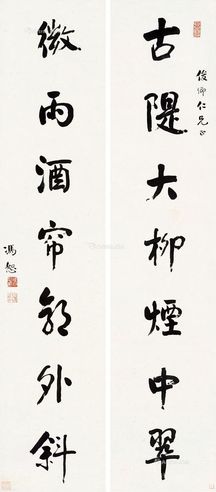 俊卿仁兄正
古隄大柳煙中翠
微雨酒帘郭外斜
馮恕